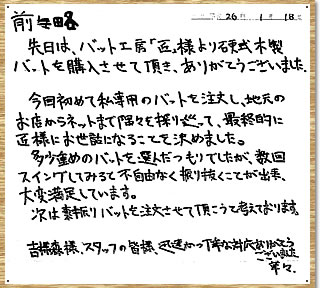 前略
26 1 18
先日は、バット工房「匠」様より硬式木製
バットを購入させて頂き、ありがとうございました。
今回初めて私専用のバットを注文し、地元の
お店からネットまで隅々を探り巡って、最終的に
匠様にお世話になることを決めました。
多少重めのバットを選んだつもりでしたが、数回
スイングしてみると不自由なく振り抜くことが出来、
大変満足しています。
次は素振りバットを注文させて頂こうと考えております。
吉森様、スタッフの皆様、迅速かつ丁寧な対応ありがとう
ございました
草々.